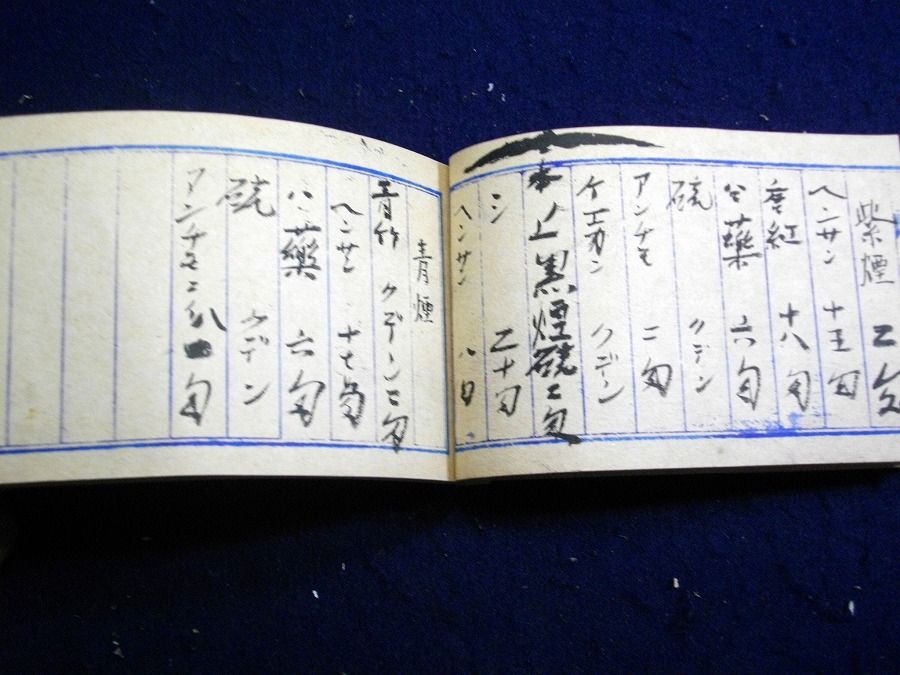 紫煙 二匁
ヘンサン 十五匁
唐紅 十八匁
公薬 六匁
硫 クデン
アンチモ 二匁
ケエカン クデン
上黒煙硫二匁
シ 二十匁
ヘンサン 八匁
青煙
青竹 クデン二匁
ヘンサン 十七匁
八薬 六匁
硫 クデン
アンチモニ 匁